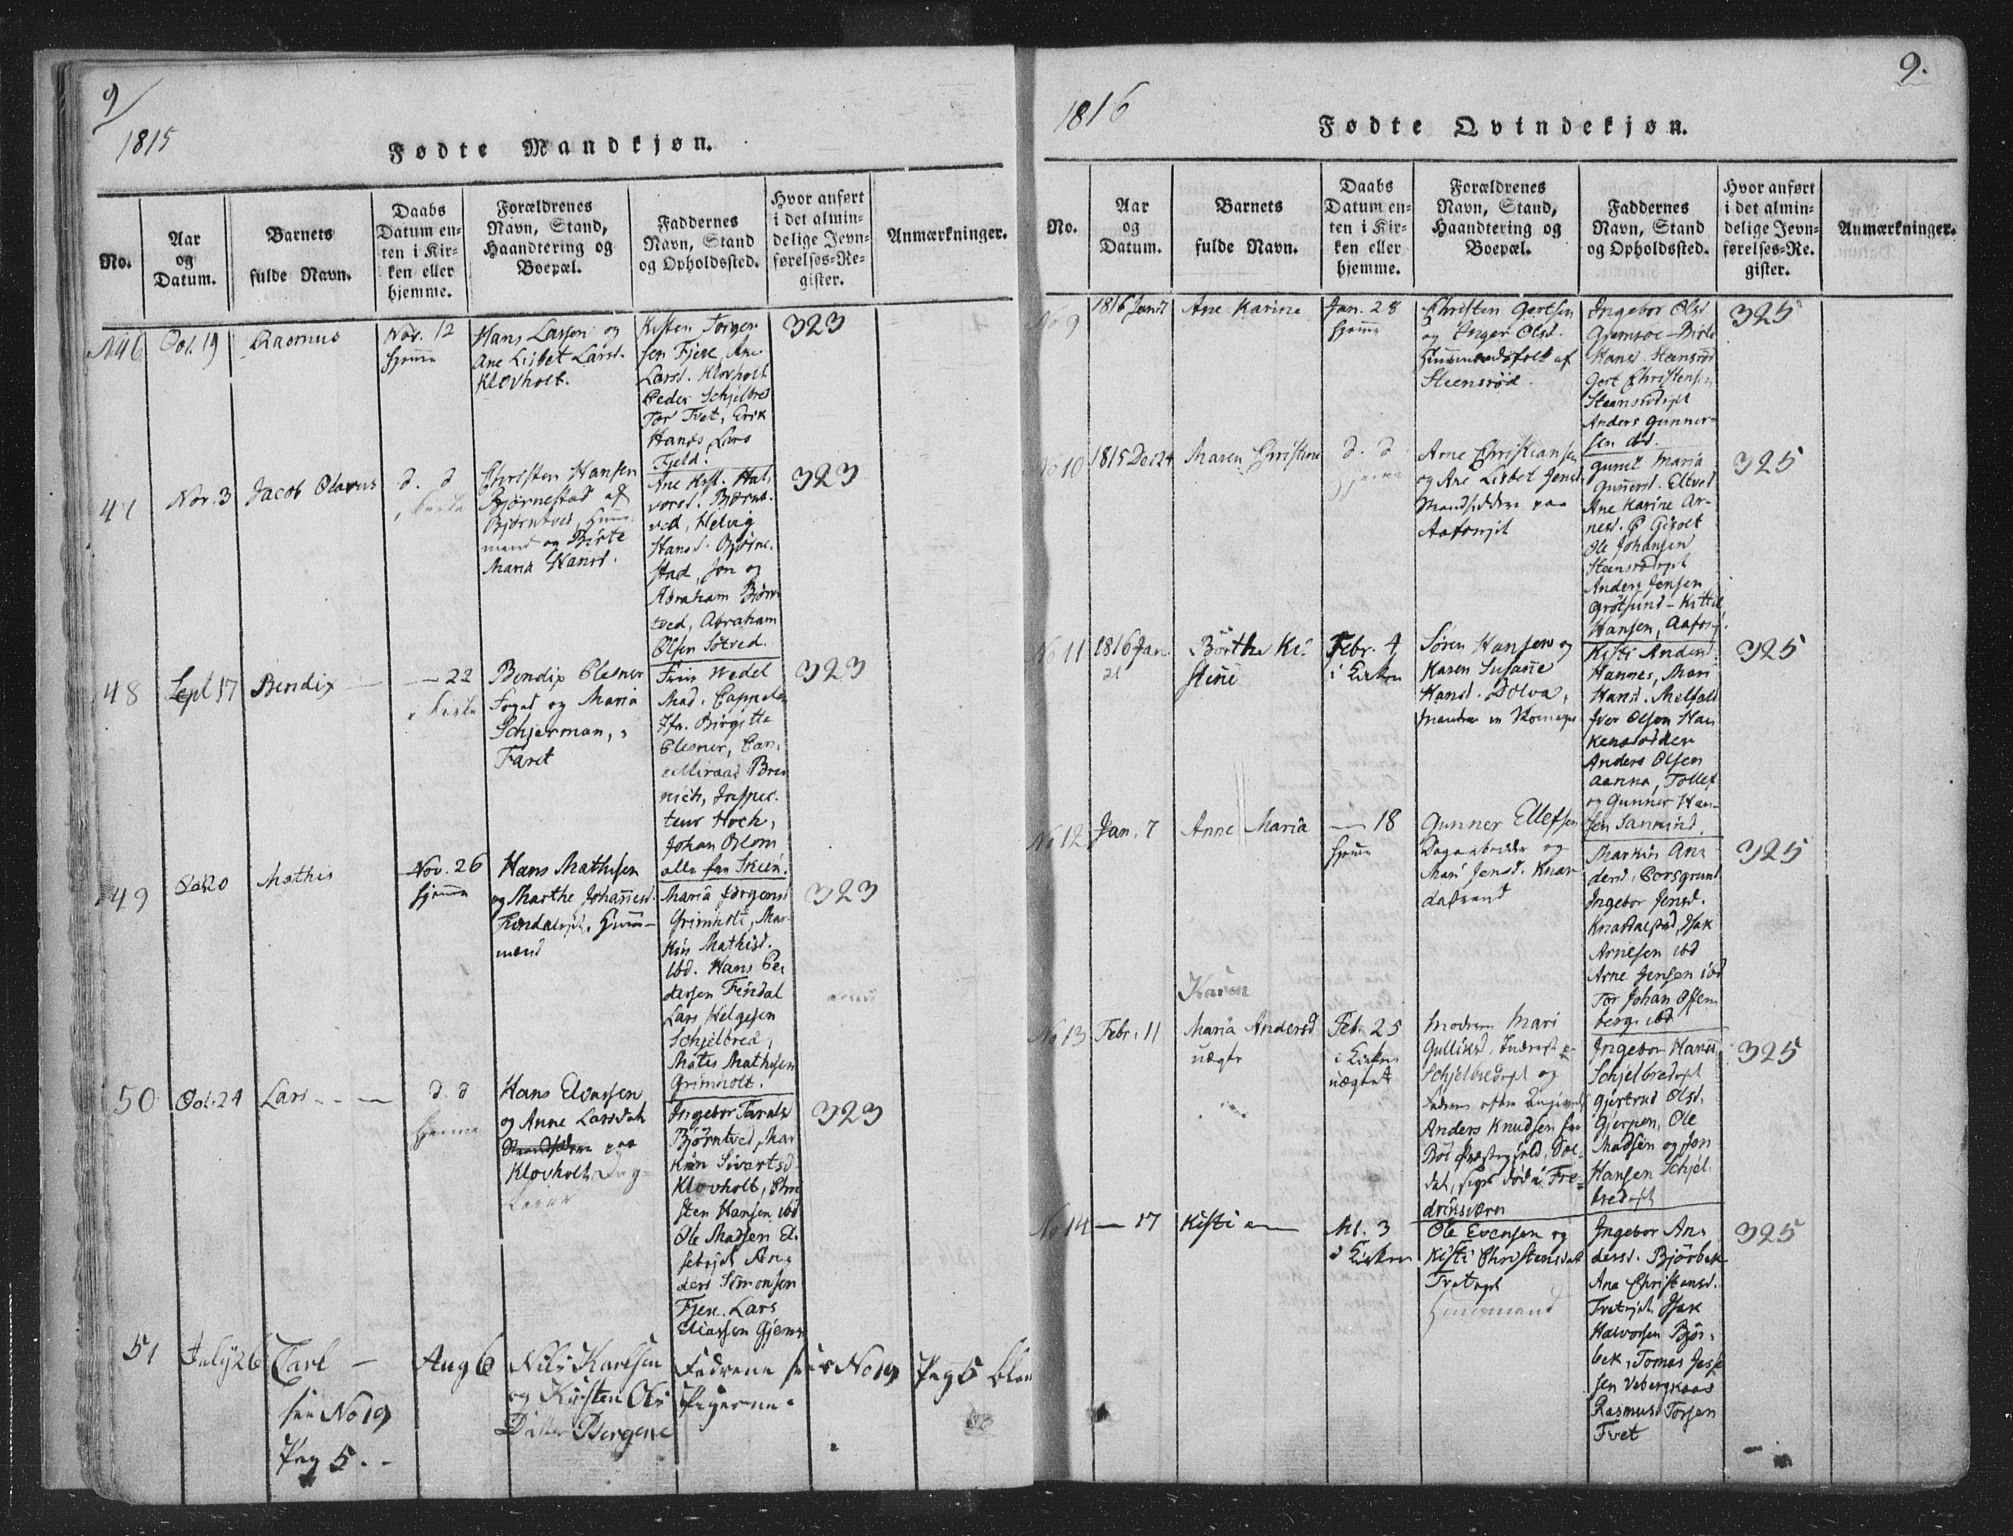 9
1815
Fødte Mandkjøn.
No.
Aar
og
Datum.
Barnets
fulde Navn.
Daabs
Datum en-
ten i Kir-
ken eller
hjemme.
Forældrenes
Navn, Stand,
Haandtering og
Boepæl.
Faddernes
Navn, Stand
og Opholdssted.
Hvor anført
i det almin-
delige Jevn-
førelses-Re-
gister.
Anmærkninger.
No 46
Oct. 19
Rasmus
Nov. 12
hjemme
Hans Larsen og
Ane Lisbet Larsd.
Klovholt.
Kisten Torger
sen Fjere, Ane
Larsd. Klovholt
Peder Schjelbred
Tor Tvet, Erik
Hans, Lars
Fjeld.
323
47
Nov. 3
Jacob Olavus
d. d
Christen Hansen
Bjørnestad af
Bjørntved, Huus-
mand og Birte
Maria Hansd.
Ane Kist. Hal
vorsd. Bjørnt
ved, Helvig
Hansd. Bjørne-
stad, Jon og
Abraham Bjørn
tved, Abraham
Olsen Sotved.
323
48
Sept 17
Bendix
— 22
Bendix Plesner
Foged og Maria
Schjerman,
Faret
Wedel
Mad. Cappelen
Jfr. Birgitte
Plesner, Can-
celliraad Bren
nich, Inspec-
teur Hoch,
Johan Blom
alle fra Skien.
323
49
Oct 20
Mathis
Nov. 26
hjemme
Hans Mathisen
og Marthe Johannesd.
Findalejet, Huus-
mænd
Maria Jørgensd
Grimholt, Mar-
kin Mathisd.
ibd. Hans Pe
dersen Findal
Lars Helgesen
Schjelbred,
Mates Mathisen
Grimholt.
323
50
Oct. 24
Lars - - —
d. d
hjemme
Hans Elvassen
og Anne Larsdat
paa
Klovholt
Ingebor Tarals
Bjørntved, Mar
kin Sivertsd
Klovholt, Chri
sten Hansen ibd
Ole Madsen E-
An-
ders Simonsen
Fjere. Lars
Eliassen Gjems
323
51
July 26
Carl —
see No 19
Pag 5. -
Aug 6
Nils Karlsen
og Kirsten Ols
Datter Bergene
Fadrene sees No 19 Pag 5
Pigerne.
1816
9.
Fødte Qvindekjøn.
No.
Aar
og
Datum.
Barnets
fulde Navn.
Daabs
Datum en-
ten i Kir-
ken eller
hjemme.
Forældrenes
Navn, Stand,
Haandtering og
Boepæl.
Faddernes
Navn, Stand
og Opholdssted.
Hvor anført
i det almin-
delige Jevn-
førelses-Re-
gister.
Anmærkninger.
No 9
1816 Jan 7
Ane Karine
Jan. 28
hjemme
Christen Gertsen
og Inger Olsd.
Huusmandsfolk af
Steensrød.
Ingebor Olsd
Gjemsoe - Birte
Hansd. Steensrød
Gert Christensen
Steensrødejet
Anders Gunner-
sen ibd.
325
No 10
1815 Dec 24
Maren Christine
d. d
hjemme
Arne Christiansen
og Ane Lisbet Jensd
paa
Aaforejet
Gunil Maria
Gunnersd. Eltved
Ane Karine Ar-
nesd. P Gisolt
Ole Johansen
Steensrødejet
Anders Jensen
Grøtsund - Kittil
Hansen, Aafos
325
No 11
1816 Jan
21
Børthe Ki-
stine
Febr. 4
i Kirken
Søren Hansen og
Karen Susanne
Hansd. Dolva,
Kisti Andersd
Hannes, Mari
Hansd. Melfald
Iver Olsen Han
kensodden
Anders Olsen
Aanna, Tollef
og Gunner Han-
sen
325
No 12
Jan. 7
Anne Maria
— 18
hjemme
Gunner Ellefsen
Dagarbeider og
Mari Jensd. Knar
dalstrand
Markin An-
dersd. Porsgrund
Ingebor Jensd.
Knardalstrd, Isak
Arnesen ibd
Arne Jensen ibd
Tor Johan Offen
berg ibd
325
No 13
Febr. 11
Karen
Maria Andersd
uægte
Feb. 25
i Kirken
uægte
Modren Mari
Gulliksd. Inderst
Schjelbredejet og
Faderen efter Angivende
Anders Knudsen fra
Bøe Præstegjeld, Sol-
dat, siges død i Fre-
driksværn
Ingebor Hansd
Schjelbredejet
Gjertrud Olsd.
Gjerpen, Ole
Madsen og Jon
Hansen Schjel
bredejet
325
No 14
— 17
Kisti —
Mt. 3
i Kirken
Ole Evensen og
Kisti Christensdat
Tvetejet
Huusmand
Ingebor An-
dersd. Bjørbek
Ane Christensd.
Tvetejet. Isak
Halvorsen Bjør-
bek, Tomas Jesse
sen Vebergkaas
Rasmus Torsen
Tvet
325